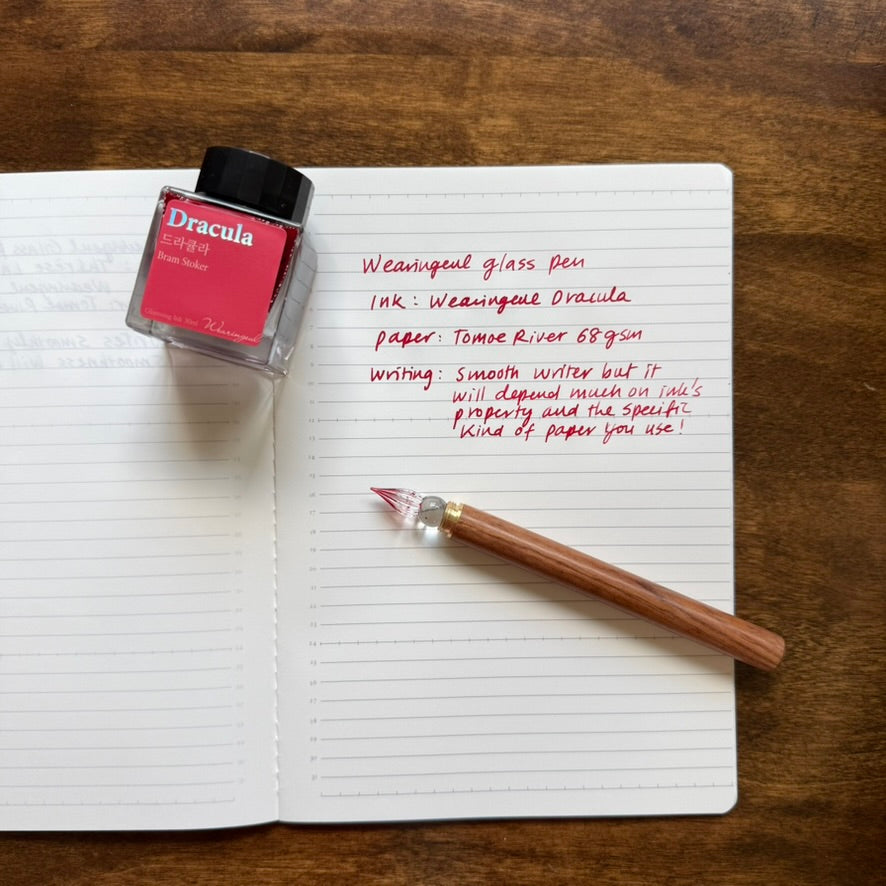 Dracula
드라큘라
Bram Stoker
Glistening Ink 30ml
Wearingeul
Wearingeul glass pen
Ink: Wearingeul Dracula
paper: Tomoe River 68gsm
Writing: Smooth writer but it
will depend much on ink's
property and the specific
kind of paper you use!